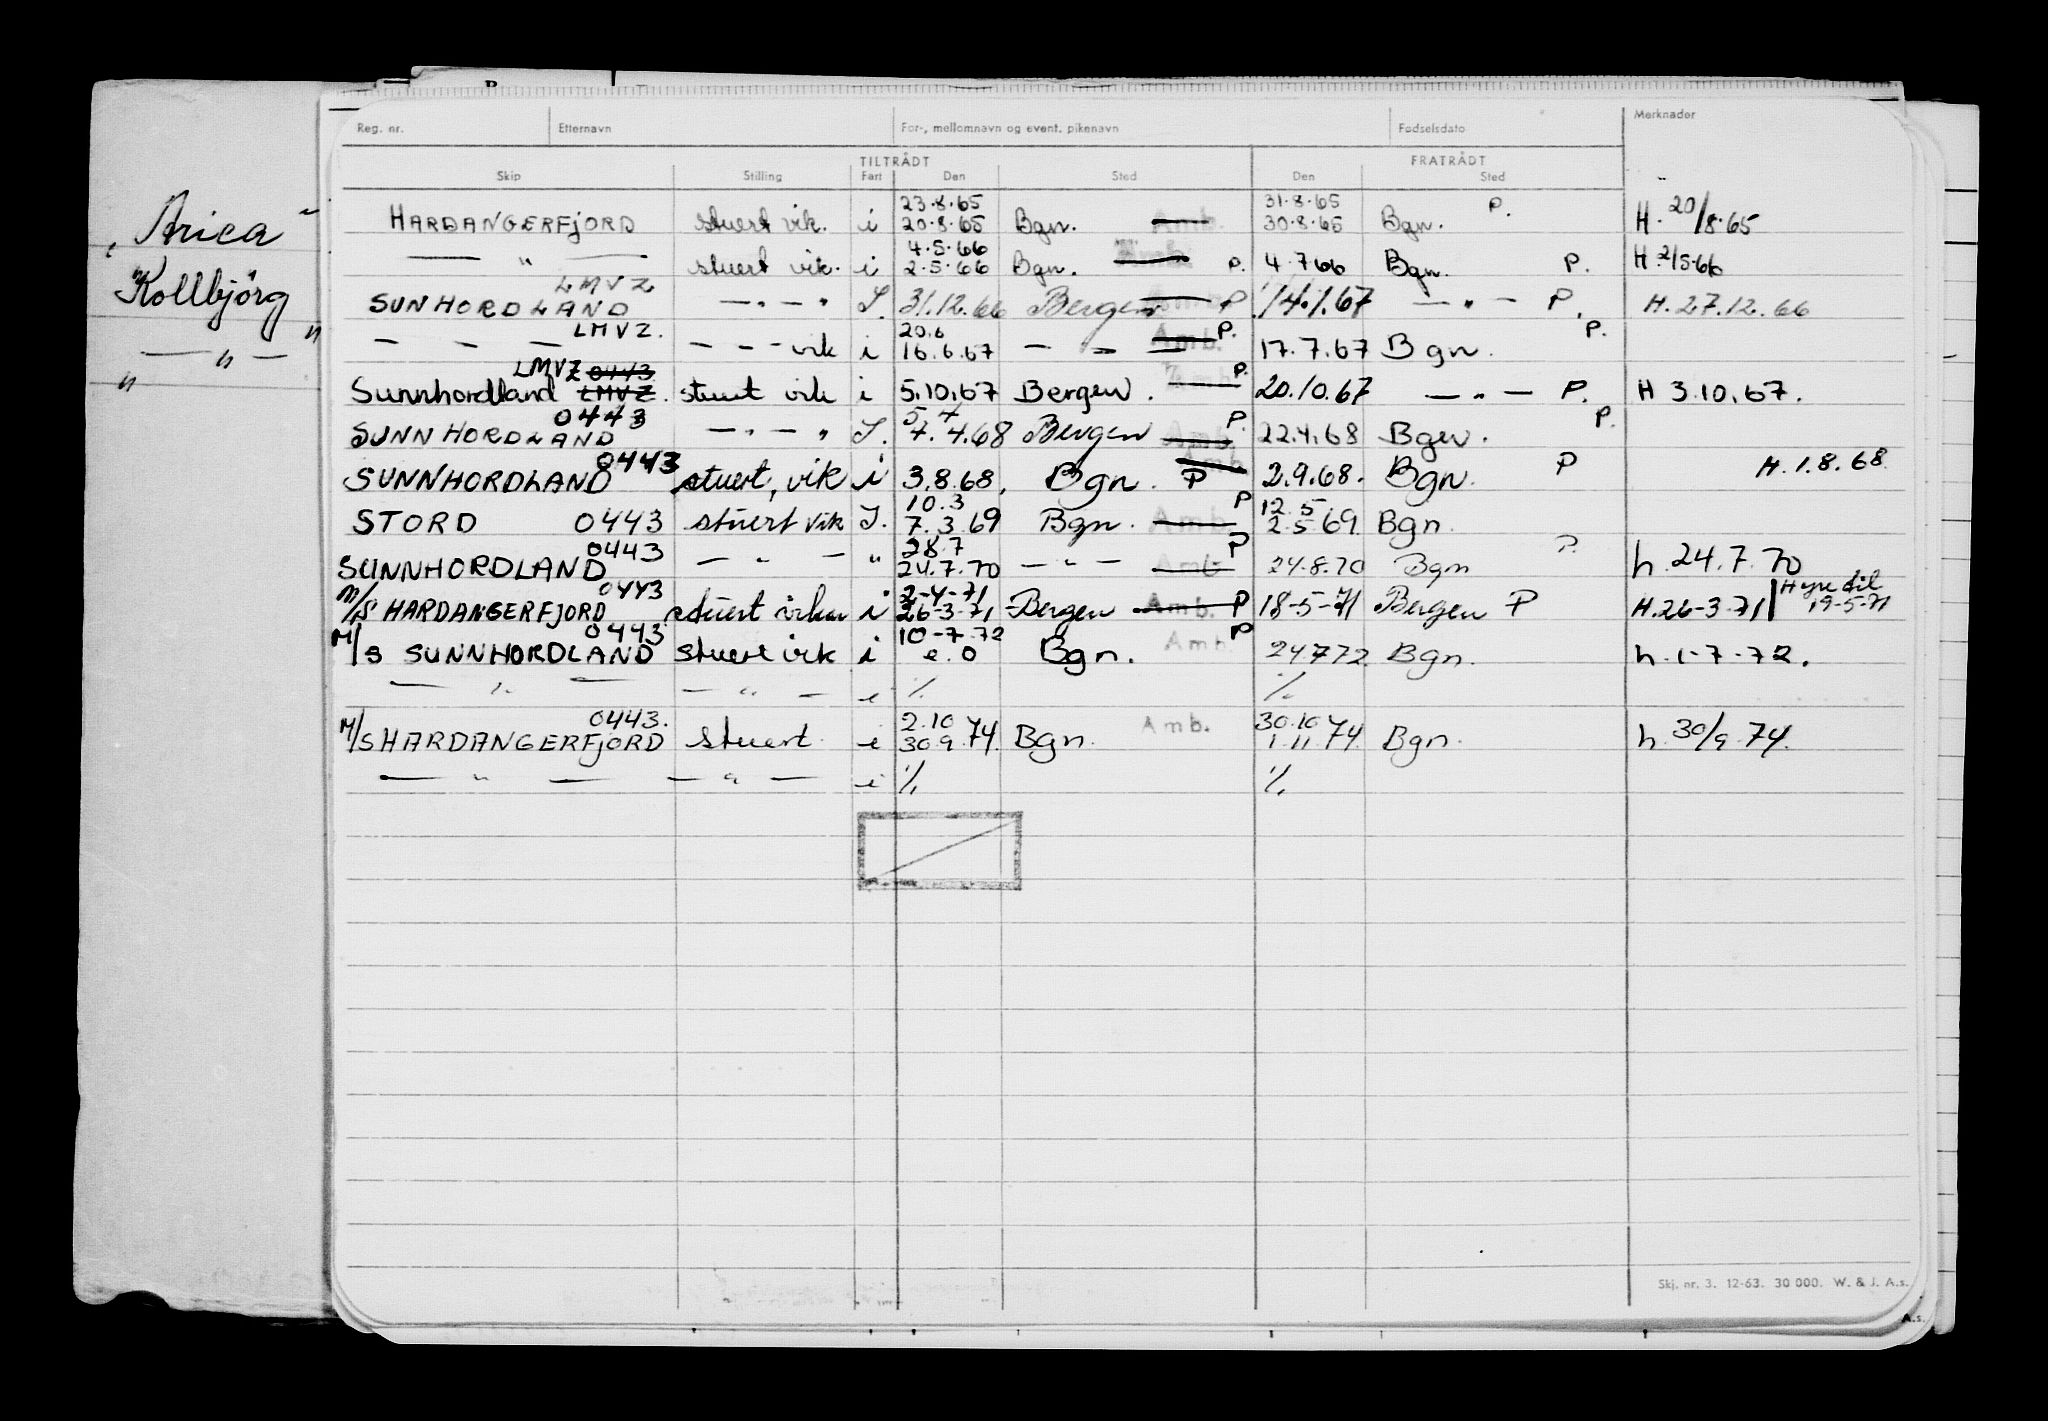 „Arica"
"Kollbjörg"
— " —
"
Reg. nr. Etternavn For-, mellomnavn og event. pikenavn Fødselsdato Merknader
TILTRÅDT FRATRÅDT
Skip Stilling Fart Den Sted Den Sted
23.8.65 31.8.65
HARDANGERFJORD stuert vik. i 20.8.65 Bgn. Amb. 30.8.65 Bgn. P. H. 20/8.65
4.5.66
— " — stuert vik. i 2.5.66 Bgn. Amb. P. 4.7 66 Bgn. P. H. 2/5.66
LMVZ
SUNHORDLAND — " — " I. 31.12.66 Bergen Amb. P 14.1.67 — " — P. H. 27.12.66
LMVZ. 20.6
— — — — — — vik i 16.6.67 — " — Amb. P. 17.7.67 Bgn. P.
LMVZ 0443
Sunnhordland LMVZ. stuert vik i 5.10.67 Bergen. Amb. P. 20.10.67 — " — P. H 3.10.67.
0443 5 4
SUNNHORDLAND — " — " I. 7.4.68 Bergen Amb. P. 22.4.68 Bgn. P.
0443
SUNNHORDLAND stuert, vik i 3.8.68, Bgn. Amb. P 2.9.68. Bgn. P H. 1.8.68
10.3 12.5
STORD 0443 stuert vik I. 7.3.69 Bgn. Amb. P 2.5.69 Bgn.
0443 28.7
SUNNHORDLAND — " — " 24.7.70 — " — Amb. P 24.8.70 Bgn P. h. 24.7.70
0443 2-4-71 Hyre til
M/S HARDANGERFJORD stuert vikar i 26-3-71 Bergen Amb. P 18-5-71 Bergen P H. 26-3-71 19-5-71
0443 10-7-72
M/S SUNNHORDLAND stuert vik i e.o Bgn. Amb. P 24.7 72 Bgn. h. 1-7-72.
— " — — " — i ٪. ٪.
0443. 2.10 30.10
M/S HARDANGERFJORD stuert i 30.9.74. Bgn. Amb. 1.11.74 Bgn. h. 30/9.74.
— " — — " — i ٪. ٪.
Skj. nr. 3. 12-63. 30 000. W. & J. A.s.
A.s.